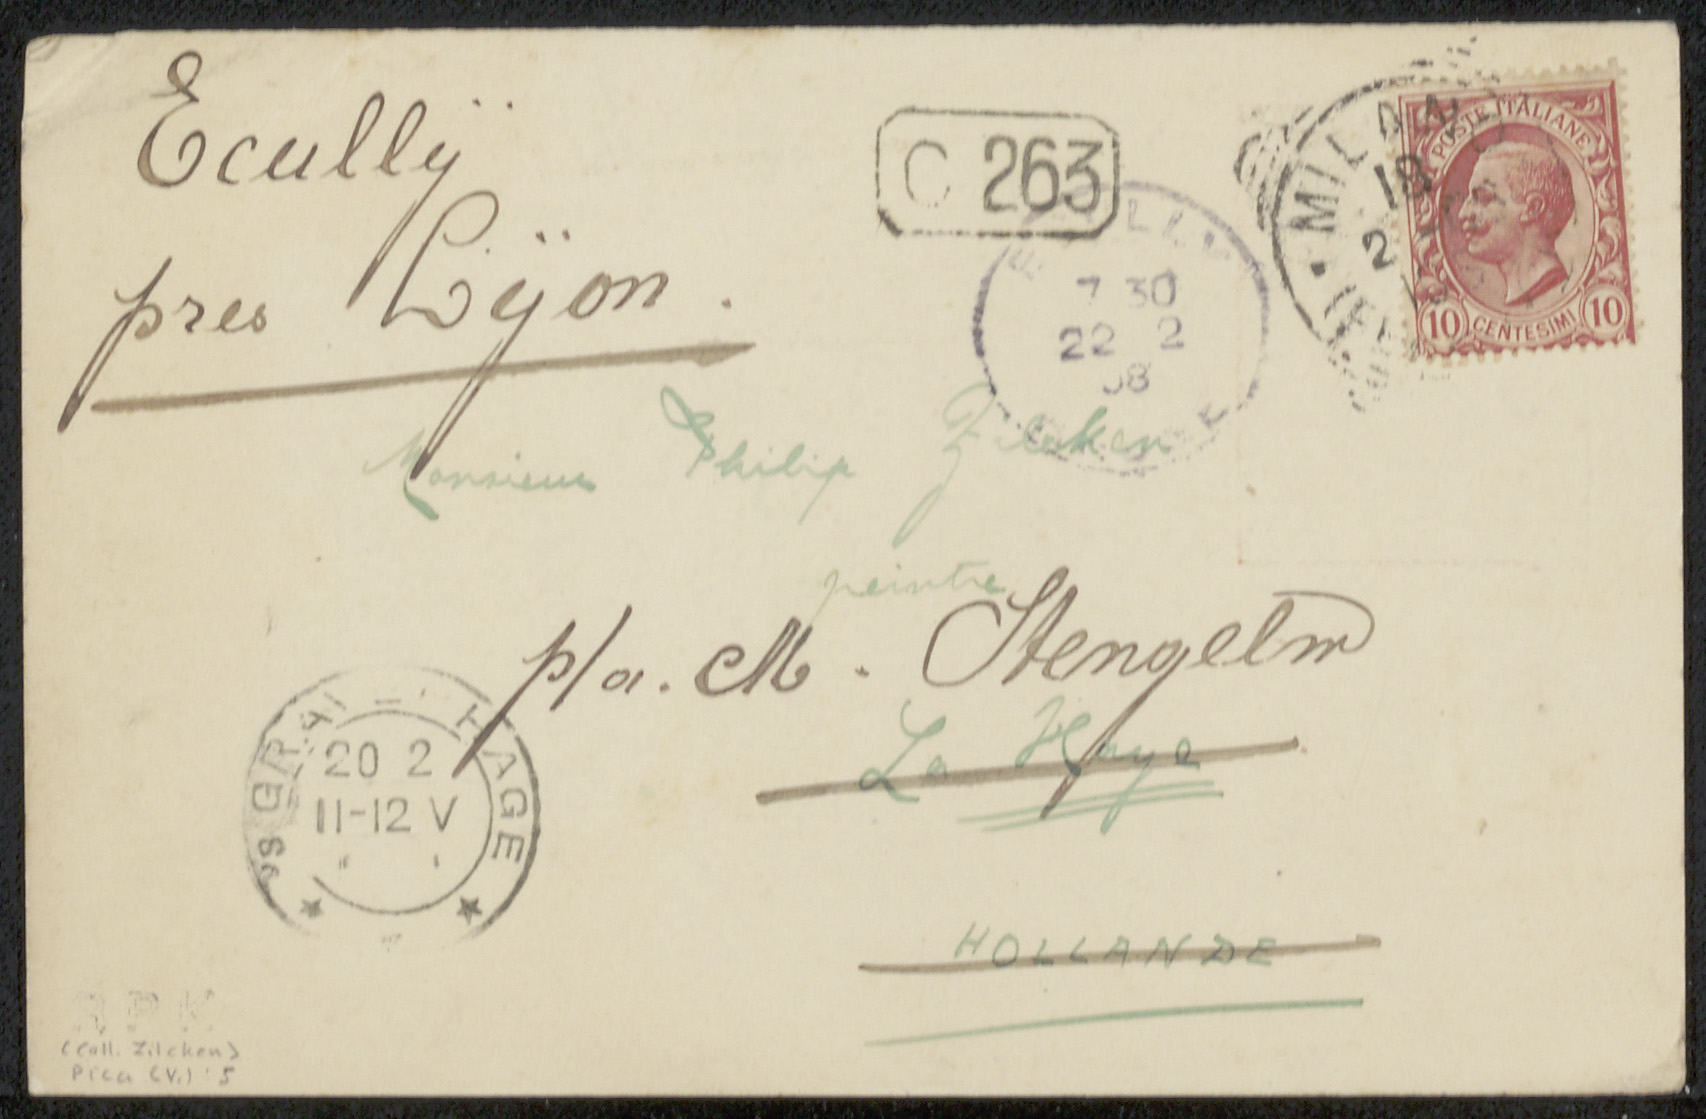 Ecullÿ
pres Lÿon.
C 263
MILANO
18
2
POSTE ITALIANE
10 CENTESIMI 10
7 30
22 2
08
Monsieur Philip Zilcken
peintre
p/a. M. Stengelin
La Haye
HOLLANDE
'S GRAVENHAGE
20 2
11-12 V
R P K
(Coll. Zilcken)
Pica (V.) : 5